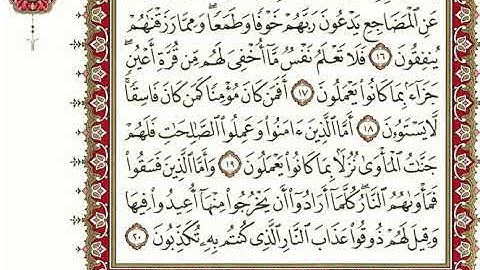 عَنِ ٱلْمَضَاجِعِ يَدْعُونَ رَبَّهُمْ خَوْفًا وَطَمَعًا وَمِمَّا رَزَقْنَٰهُمْ
يُنفِقُونَ ١٦ فَلَا تَعْلَمُ نَفْسٌ مَّآ أُخْفِىَ لَهُم مِّن قُرَّةِ أَعْيُنٍ
جَزَآءًۢ بِمَا كَانُوا۟ يَعْمَلُونَ ١٧ أَفَمَن كَانَ مُؤْمِنًا كَمَن كَانَ فَاسِقًا ۚ
لَّا يَسْتَوُۥنَ ١٨ أَمَّا ٱلَّذِينَ ءَامَنُوا۟ وَعَمِلُوا۟ ٱلصَّٰلِحَٰتِ فَلَهُمْ
جَنَّٰتُ ٱلْمَأْوَىٰ نُزُلًۢا بِمَا كَانُوا۟ يَعْمَلُونَ ١٩ وَأَمَّا ٱلَّذِينَ فَسَقُوا۟
فَمَأْوَىٰهُمُ ٱلنَّارُ ۖ كُلَّمَآ أَرَادُوٓا۟ أَن يَخْرُجُوا۟ مِنْهَآ أُعِيدُوا۟ فِيهَا
وَقِيلَ لَهُمْ ذُوقُوا۟ عَذَابَ ٱلنَّارِ ٱلَّذِى كُنتُم بِهِۦ تُكَذِّبُونَ ٢٠